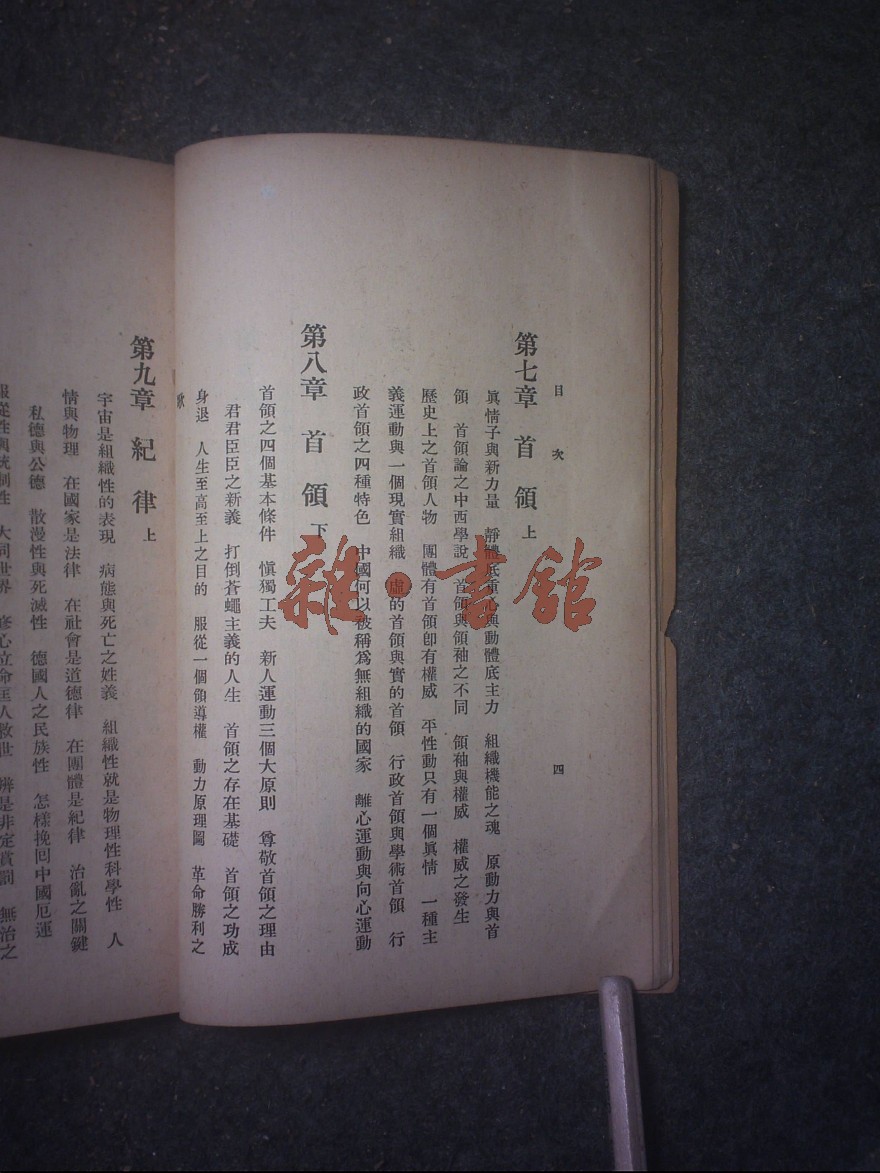 目次
四
第七章 首領 上
眞情子與新力量 靜體底重心與動體底主力 組織機能之魂 原動力與首
領 首領論之中西學說 首領與領袖之不同 領袖與權威 權威之發生
歷史上之首領人物 團體有首領卽有權威 平性動只有一個眞情 一種主
義運動與一個現實組織 虛的首領與實的首領 行政首領與學術首領 行
政首領之四種特色 中國何以被稱爲無組織的國家 離心運動與向心運動
第八章 首領 下
首領之四個基本條件 愼獨工夫 新人運動三個大原則 尊敬首領之理由
君君臣臣之新義 打倒蒼蠅主義的人生 首領之存在基礎 首領之功成
身退 人生至高至上之目的 服從一個領導權 動力原理圖 革命勝利之
歌
第九章 紀律 上
宇宙是組織性的表現 病態與死亡之姓義 組織性就是物理性科學性 人
情與物理 在國家是法律 在社會是道德律 在團體是紀律 治亂之關鍵
私德與公德 散漫性與死滅性 德國人之民族性 怎樣挽回中國厄運
服從性與統制性 大同世界 修心立命匡人救世 辨是非定賞罰 無治之
雜·書館